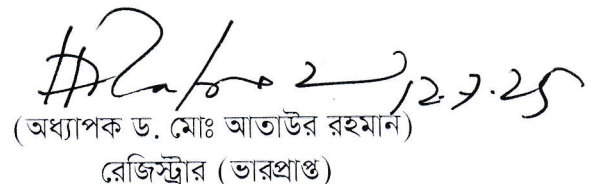 12.7.25
(অধ্যাপক ড. মোঃ আতাউর রহমান)
রেজিস্ট্রার (ভারপ্রাপ্ত)